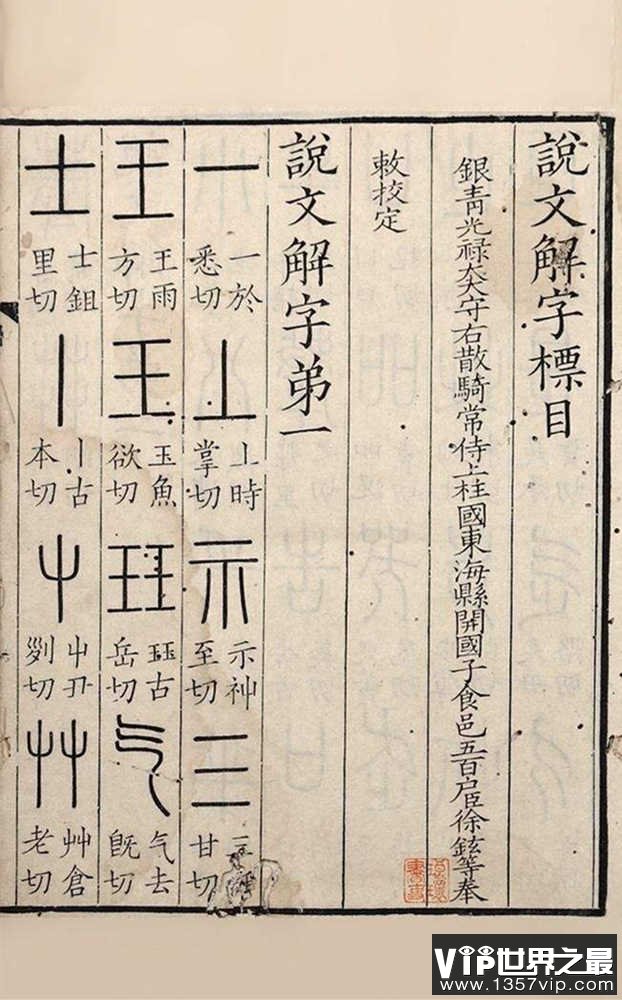 說文解字標目
銀青光祿大夫守右散騎常侍上柱國東海縣開國子食邑五百户臣徐鉉等奉
敕挍定
說文解字弟一
一 一於悉切 丄 丄時掌切 示 示神至切 三 三 甘切
王 王雨方切 玉 玉魚欲切 玨 玨古岳切 气 气去旣切
士 士鉏里切 丨 丨古本切 屮 屮丑列切 艸 艸倉老切
VIP世界之最
www.1357vip.com